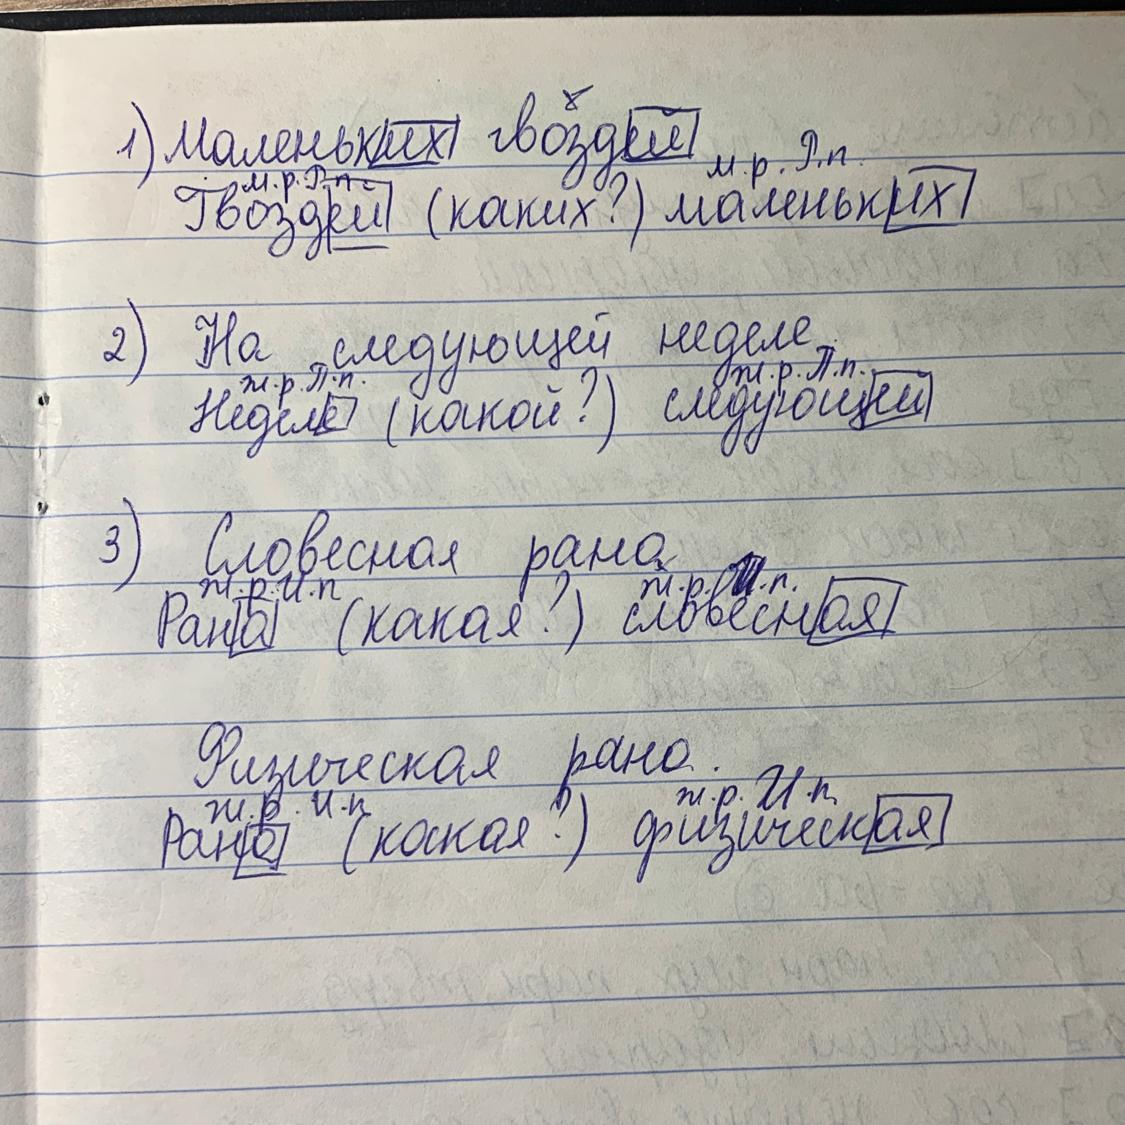 1) Маленьких гвоздей
м.р. Р.п. м.р. Р.п.
Гвоздей (каких?) маленьких
2) На следующей неделе.
ж.р. П.п. ж.р. П.п.
Неделе (какой?) следующей
3) Словесная рана.
ж.р. И.п ж.р. И.п.
Рана (какая?) словесная
Физическая рана.
ж.р. И.п ж.р. И.п.
Рана (какая?) физическая